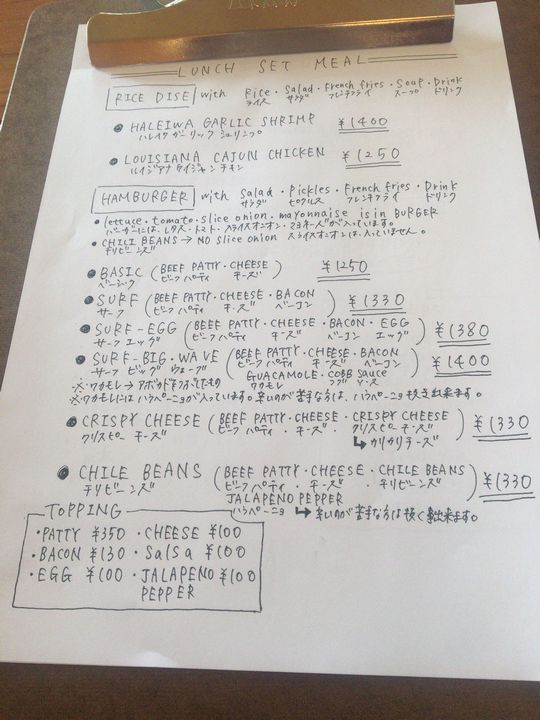 LUNCH SET MEAL
RICE DISE with Rice・Salad・French fries・Soup・Drink
ライス サラダ フレンチフライ スープ ドリンク
●HALEIWA GARLIC SHRIMP ¥1400
ハレイワガーリックシュリンプ
●LOUISIANA CAJUN CHICKEN ¥1250
ルイジアナケイジャンチキン
HAMBURGER with Salad・Pickles・French fries・Drink
サラダ ピクルス フレンチフライ ドリンク
●lettuce・tomato・slice onion・mayonnaise is in BURGER
バーガーには、レタス・トマト・スライスオニオン・マヨネーズが入っています。
●CHILI BEANS→NO slice onion スライスオニオンは、入っていません。
チリビーンズ
●BASIC (BEEF PATTY・CHEESE) ¥1250
ベーシック ビーフパティ チーズ
●SURF (BEEF PATTY・CHEESE・BACON) ¥1330
サーフ ビーフパティ チーズ ベーコン
●SURF-EGG (BEEF PATTY・CHEESE・BACON・EGG) ¥1380
サーフエッグ ビーフパティ チーズ ベーコン エッグ
●SURF-BIG・WAVE (BEEF PATTY・CHEESE・BACON) ¥1400
サーフ ビッグ ウェーブ ビーフパティ チーズ ベーコン
GUACAMOLE・COBB sauce
ワカモレ コブソース
※ワカモレ→アボカドをつぶしたもの
※ワカモレにはハラペーニョが入っています。辛いのが苦手な方は、ハラペーニョ抜き出来ます。
●CRISPY CHEESE (BEEF PATTY・CHEESE・CRISPY CHEESE) ¥1330
クリスピーチーズ ビーフパティ・チーズ・クリスピーチーズ
↳カリカリチーズ
●CHILE BEANS (BEEF PATTY・CHEESE・CHILE BEANS) ¥1330
チリビーンズ ビーフパティ・チーズ・チリビーンズ
JALAPENO PEPPER
ハラペーニョ ↳辛いのが苦手な方は抜く事出来ます。
TOPPING
・PATTY ¥350・CHEESE ¥100
・BACON ¥130・Salsa ¥100
・EGG ¥100・JALAPENO ¥100
PEPPER